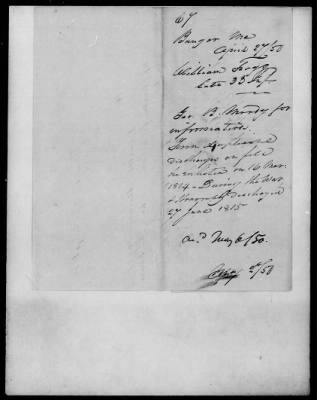 67
Bangor Me
April 27/50
William
late 35 Inf.
Geo. B. Moody for
information.
discharge on file
he enlisted on 16 Mar.
1814 - During the War
& Honorably Discharged
27 June 1815
And May 6/50.